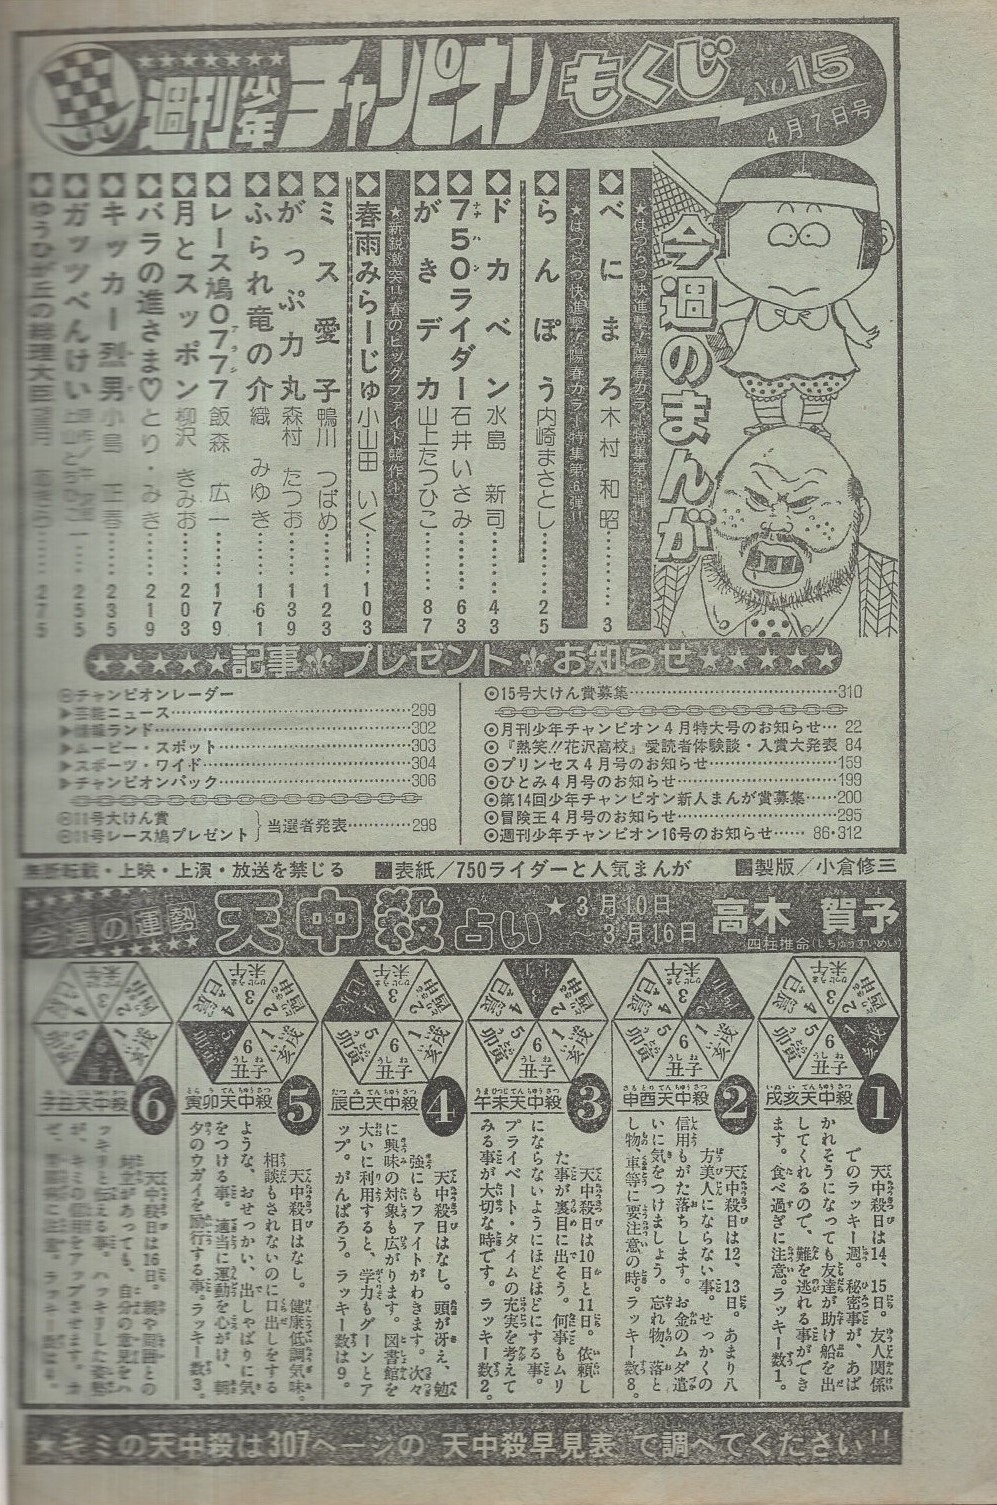 週刊少年チャンピオンもくじ
NO.15
4月7日号
今週のまんが
★はつらつ快進撃!陽春カラー特集第6弾!!
べにまろ 木村和昭………3
★はつらつ快進撃!陽春カラー特集第6弾!!
らんぽう 内崎まさとし……25
ドカベン 水島新司………43
750ライダー 石井いさみ………63
がきデカ 山上たつひこ………87
春のビッグファイト競作
春雨みらーじゅ 小山田いく……103
ミス愛子 鴨川つばめ……123
がっぷ力丸 森村たつお……139
ふられ竜の介 織みゆき……161
レース鳩0777 飯森広一……179
月とスッポン 柳沢きみお……203
バラの進さま♡ とり・みき……219
キッカー烈男 小島正春……235
ガッツべんけい ……255
ゆうひが丘の総理大臣 望月あきら……275
★★★★記事 プレゼント お知らせ★★★★
◎チャンピオンレーダー
▶芸能ニュース……299
▶情報ランド……302
▶ムービー・スポット……303
▶スポーツ・ワイド……304
▶チャンピオンパック……306
◎11号大けん賞
◎11号レース鳩プレゼント
当選者発表……298
◎15号大けん賞募集……310
◎月刊少年チャンピオン4月特大号のお知らせ…22
◎『熱笑!!花沢高校』愛読者体験談・入賞大発表 84
◎プリンセス4月号のお知らせ……159
◎ひとみ4月号のお知らせ……199
◎第14回少年チャンピオン新人まんが賞募集……200
◎冒険王4月号のお知らせ……295
◎週刊少年チャンピオン16号のお知らせ…… 86・312
無断転載・上映・上演・放送を禁じる
表紙/750ライダーと人気まんが
製版/小倉修三
今週の運勢
天中殺占い
★3月10日
~3月16日
高木賀予
四柱推命(しちゅうすいめい)
1
戌亥天中殺
天中殺日は14、15日。友人関係
でのラッキー週。秘密事が、あば
かれそうになっても友達が助け船を出
してくれるので、難を逃れる事ができ
ます。食べ過ぎに注意。ラッキー数1。
2
申酉天中殺
天中殺日は12、13日。あまり八
方美人にならない事。せっかくの
信用もがた落ちします。お金のムダ遣
いに気をつけましょう。忘れ物、落と
し物、車等に要注意の時。ラッキー数8。
3
午未天中殺
天中殺日は10日と11日。依頼し
た事が裏目に出そう。何事もムリ
にならないようにほどほどにする事。
プライベート・タイムの充実を考えて
みる事が大切な時です。ラッキー数2。
4
辰巳天中殺
天中殺日はなし。頭が冴え、勉
強にもファイトがわきます。次々
に興味の対象も広がります。図書館を
大いに利用すると、学力もグーンとア
ップ。がんばろう。ラッキー数は9。
5
寅卯天中殺
天中殺日はなし。健康低調気味。
相談もされないのに口出しをする
ような、おせっかい、出しゃばりに気
をつける事。適当に運動を心がけ、朝
夕のウガイを励行する事。ラッキー数3。
6
子丑天中殺
天中殺日は16日。親や周囲との
対立があっても、自分の意見をハ
ッキリと伝える事。ハッキリした姿勢
が、キミの信用をアップさせます。カ
★キミの天中殺は307ページの"天中殺早見表"で調べてください!!